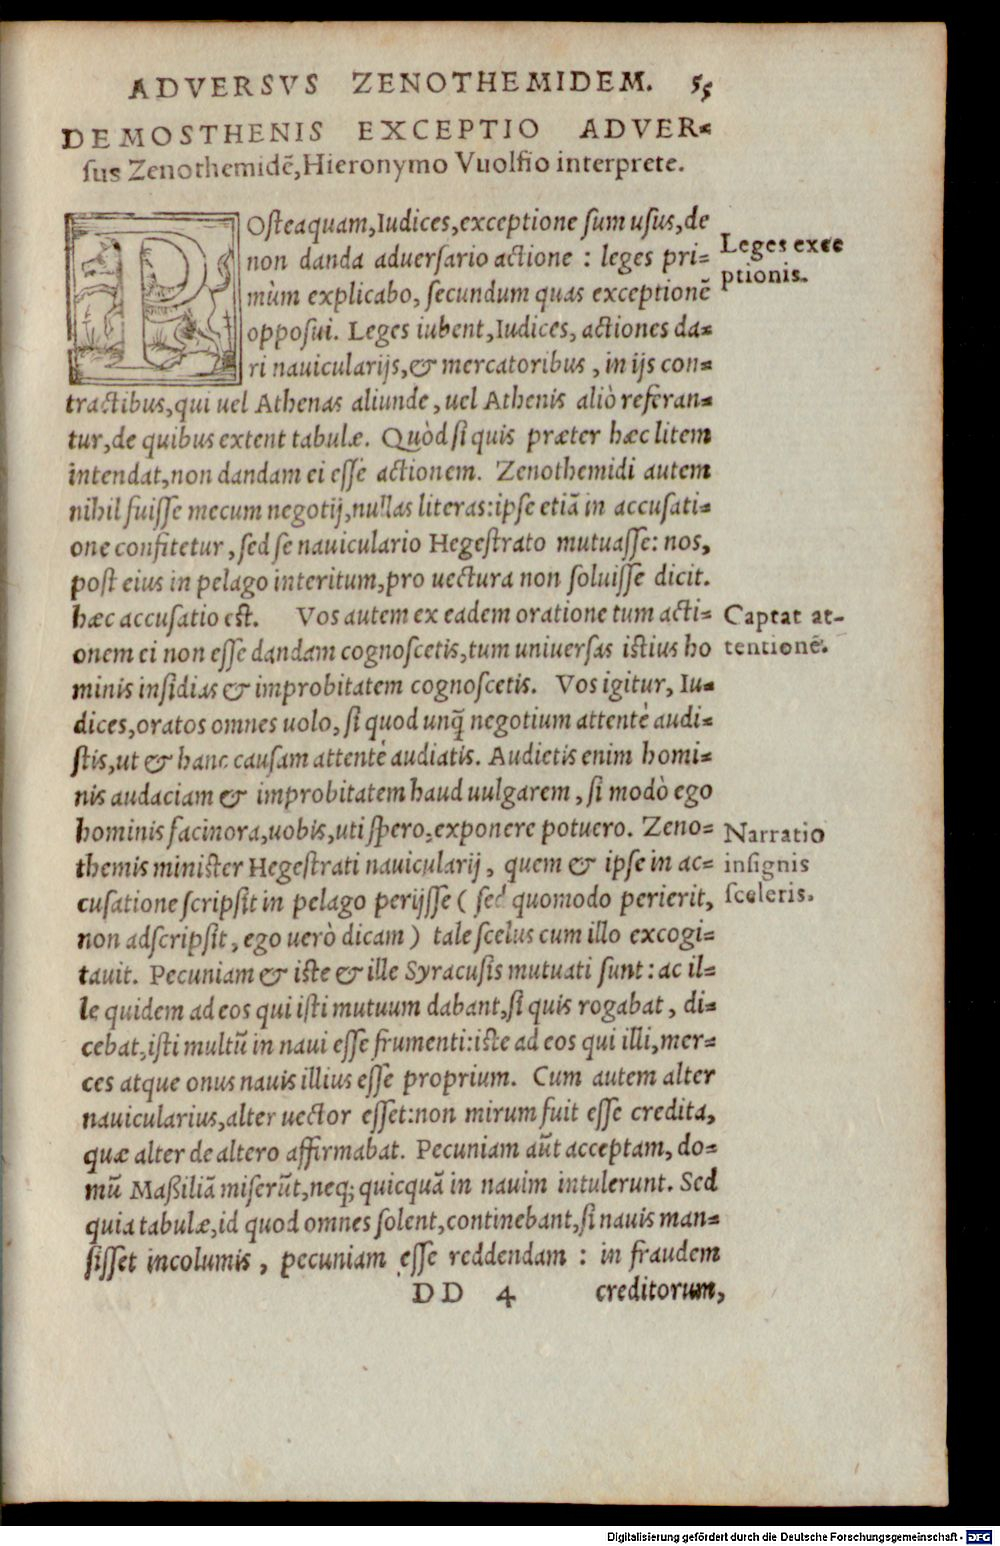 ADVERSVS ZENOTHEMIDEM. 55
DEMOSTHENIS EXCEPTIO ADVER-
sus Zenothemidē, Hieronymo Vuolfio interprete.
POsteaquam, Iudices, exceptione sum usus, de
non danda adversario actione : leges pri-
mùm explicabo, secundum quas exceptionē
opposui. Leges iubent, Iudices, actiones da-
ri navicularijs, & mercatoribus, in ijs con-
tractibus, qui uel Athenas aliunde, uel Athenis aliò referan-
tur, de quibus extent tabulæ. Quòd si quis præter hæc litem
intendat, non dandam ei esse actionem. Zenothemidi autem
nihil fuisse mecum negotij, nullas literas: ipse etiā in accusati-
one confitetur, sed se naviculario Hegestrato mutuasse: nos,
post eius in pelago interitum, pro uectura non soluisse dicit.
hæc accusatio est. Vos autem ex eadem oratione tum acti-
onem ei non esse dandam cognoscetis, tum universas istius ho
minis insidias & improbitatem cognoscetis. Vos igitur, Iu-
dices, oratos omnes uolo, si quod unq̄ negotium attentè audi-
stis, ut & hanc causam attentè audiatis. Audietis enim homi-
nis audaciam & improbitatem haud uulgarem, si modò ego
hominis facinora, uobis, uti spero, exponere potuero. Zeno-
themis minister Hegestrati navicularij, quem & ipse in ac-
cusatione scripsit in pelago perijsse ( sed quomodo perierit,
non adscripsit, ego uerò dicam ) tale scelus cum illo excogi-
tavit. Pecuniam & iste & ille Syracusis mutuati sunt: ac il-
le quidem ad eos qui isti mutuum dabant, si quis rogabat, di-
cebat, isti multū in navi esse frumenti: iste ad eos qui illi, mer-
ces atque onus navis illius esse proprium. Cum autem alter
navicularius, alter uector esset: non mirum fuit esse credita,
quæ alter de altero affirmabat. Pecuniam aūt acceptam, do-
mū Maßiliā miserūt, neq; quicquā in navim intulerunt. Sed
quia tabulæ, id quod omnes solent, continebant, si navis man-
sisset incolumis, pecuniam esse reddendam : in fraudem
DD 4 creditorum,
Leges exce
ptionis.
Captat at-
tentionē.
Narratio
insignis
sceleris.
Digitalisierung gefördert durch die Deutsche Forschungsgemeinschaft - DFG